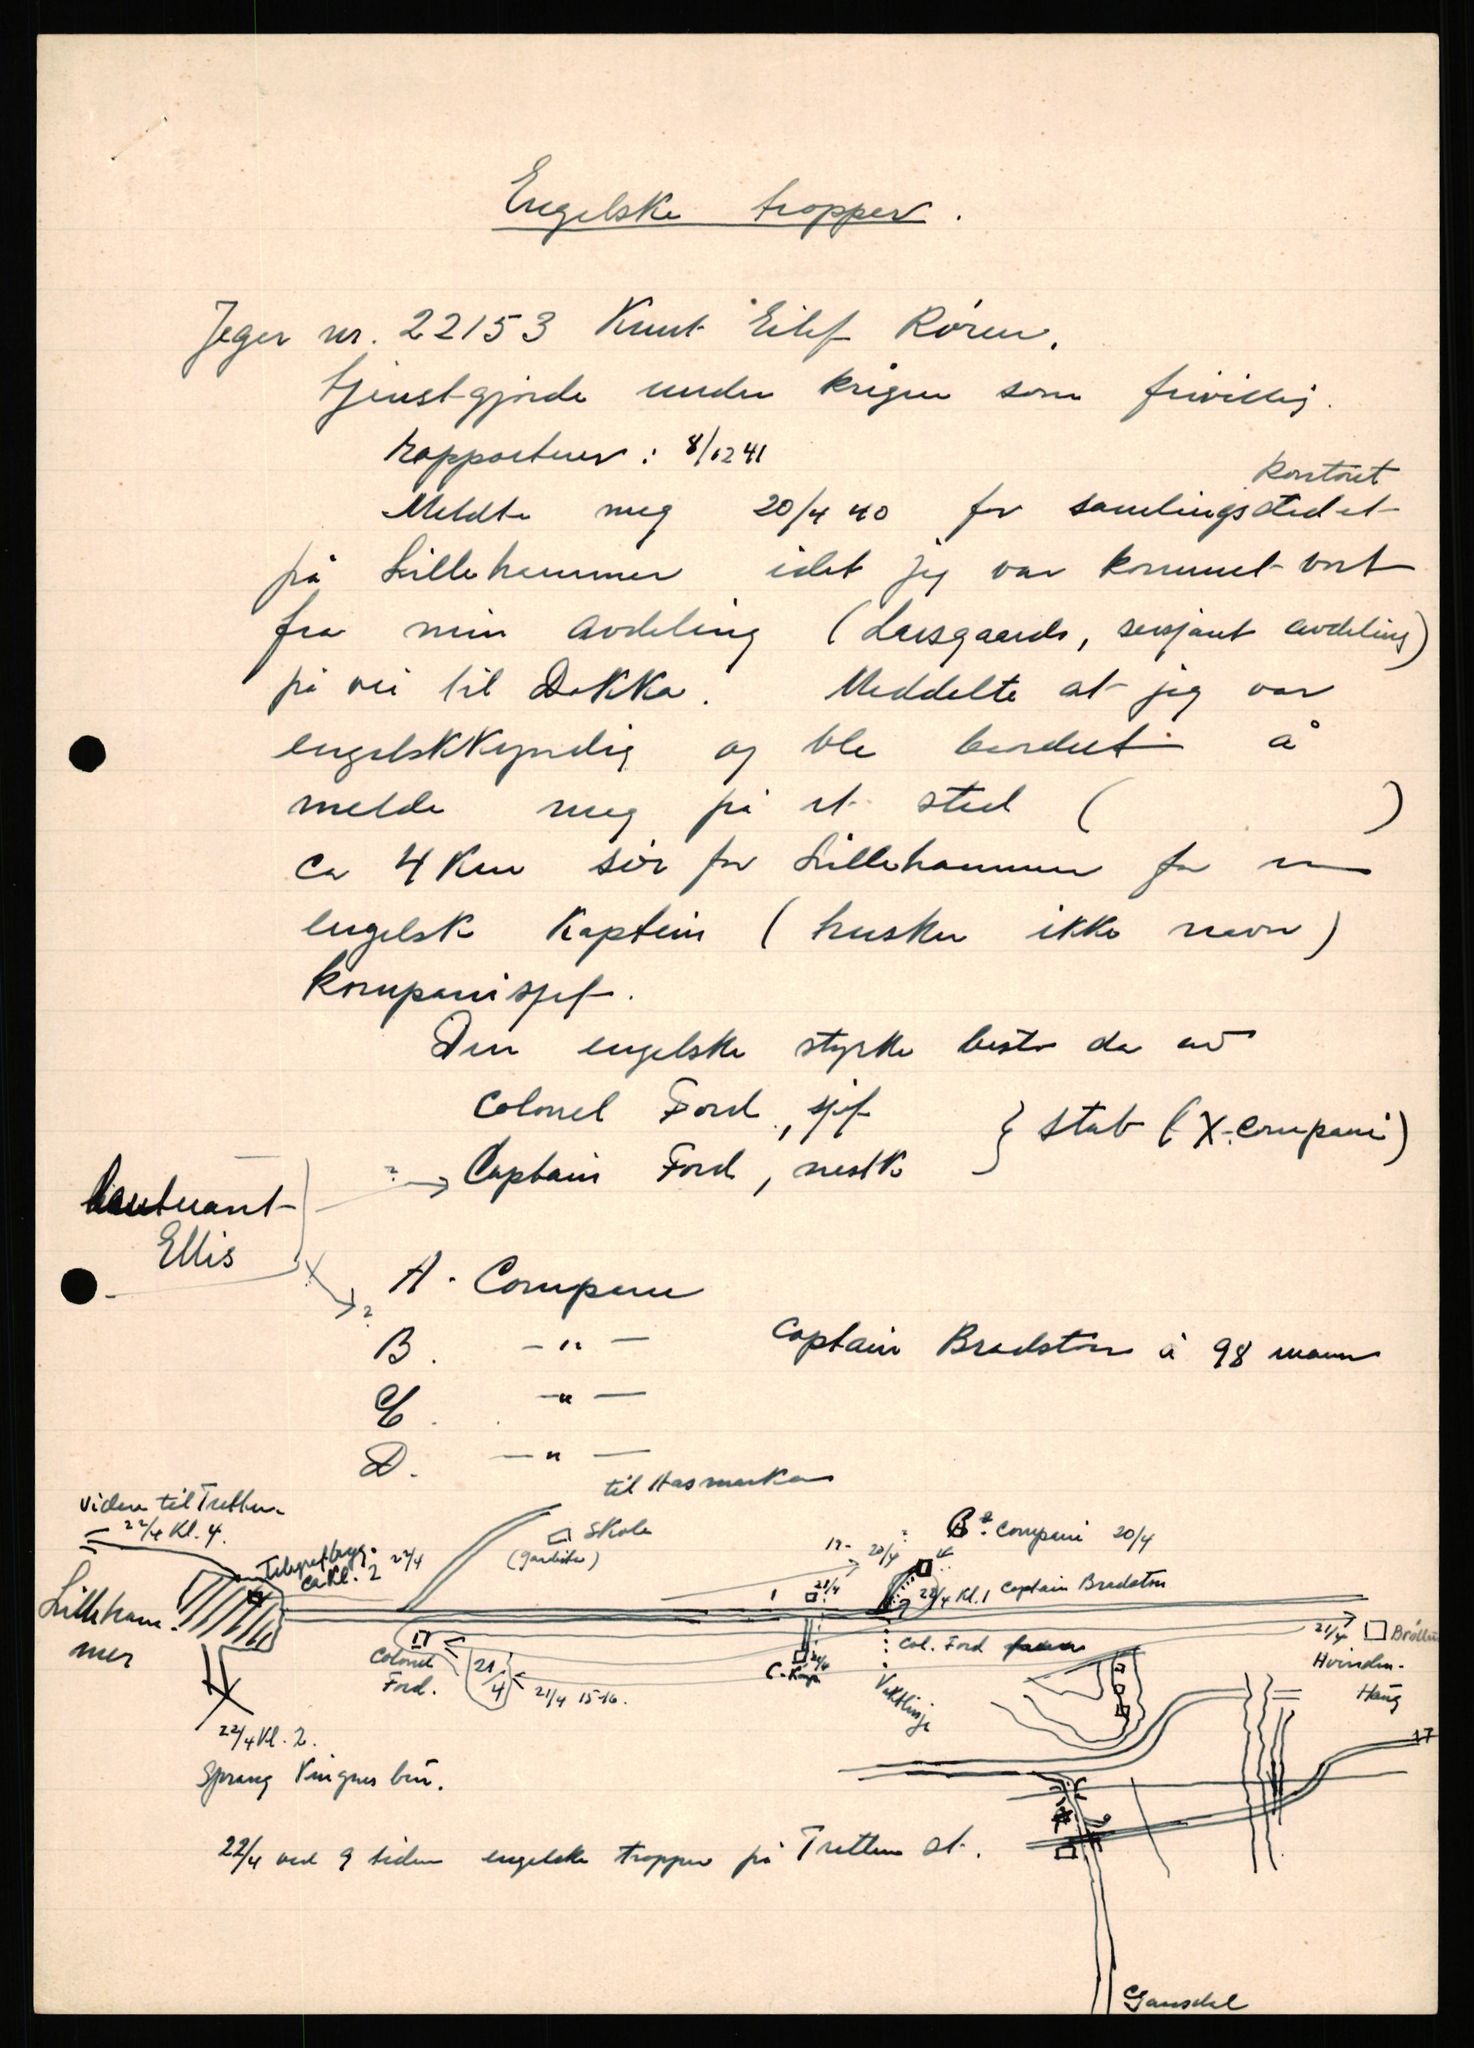 Engelske tropper.
Jeger nr. 22153 Knut Eilif Rören.
tjenstgjorde under krigen som frivillig.
rapporterer: 8/12 41
kontoret
Meldte meg 20/4 40 for samlingsstedet
på Lillehammer idet jeg var kommet bort
fra min avdeling (Larsgaards, sersjant avdeling)
på vei til Dokka. Meddelte at jeg var
engelskkyndig og ble beordret å
melde meg på et sted ( )
ca 4 Km sör for Lillehammer for en
engelsk Kaptein (husker ikke navn)
kompanisjef.
Den engelske styrke besto da av
Colonel Ford, sjef
} Stab (X-compani)
Captain Ford, nestk
?
Lieutenant
Ellis
?
A. Compani
B. — " — Captain Bradston à 98 mann
C. — " —
D. — " —
til Aasmarka
videre til Tretten
22/4 Kl. 4.
Skole
B. Compani 20/4
Telegrafbygg.
ca Kl. 2 22/4
20/4
22/4 Kl. 1 Captain Bradston
Lilleham-
mer
Colonel
Ford.
21/4
21/4 15-16.
C-Komp
21/4
Col. Ford
Vaktlinje
21/4
Hvinden-
Haug
22/4 Kl. 2.
Sprang Vingnes bru.
22/4 ved 9 tiden engelske tropper på Tretten st.
17
Gausdal